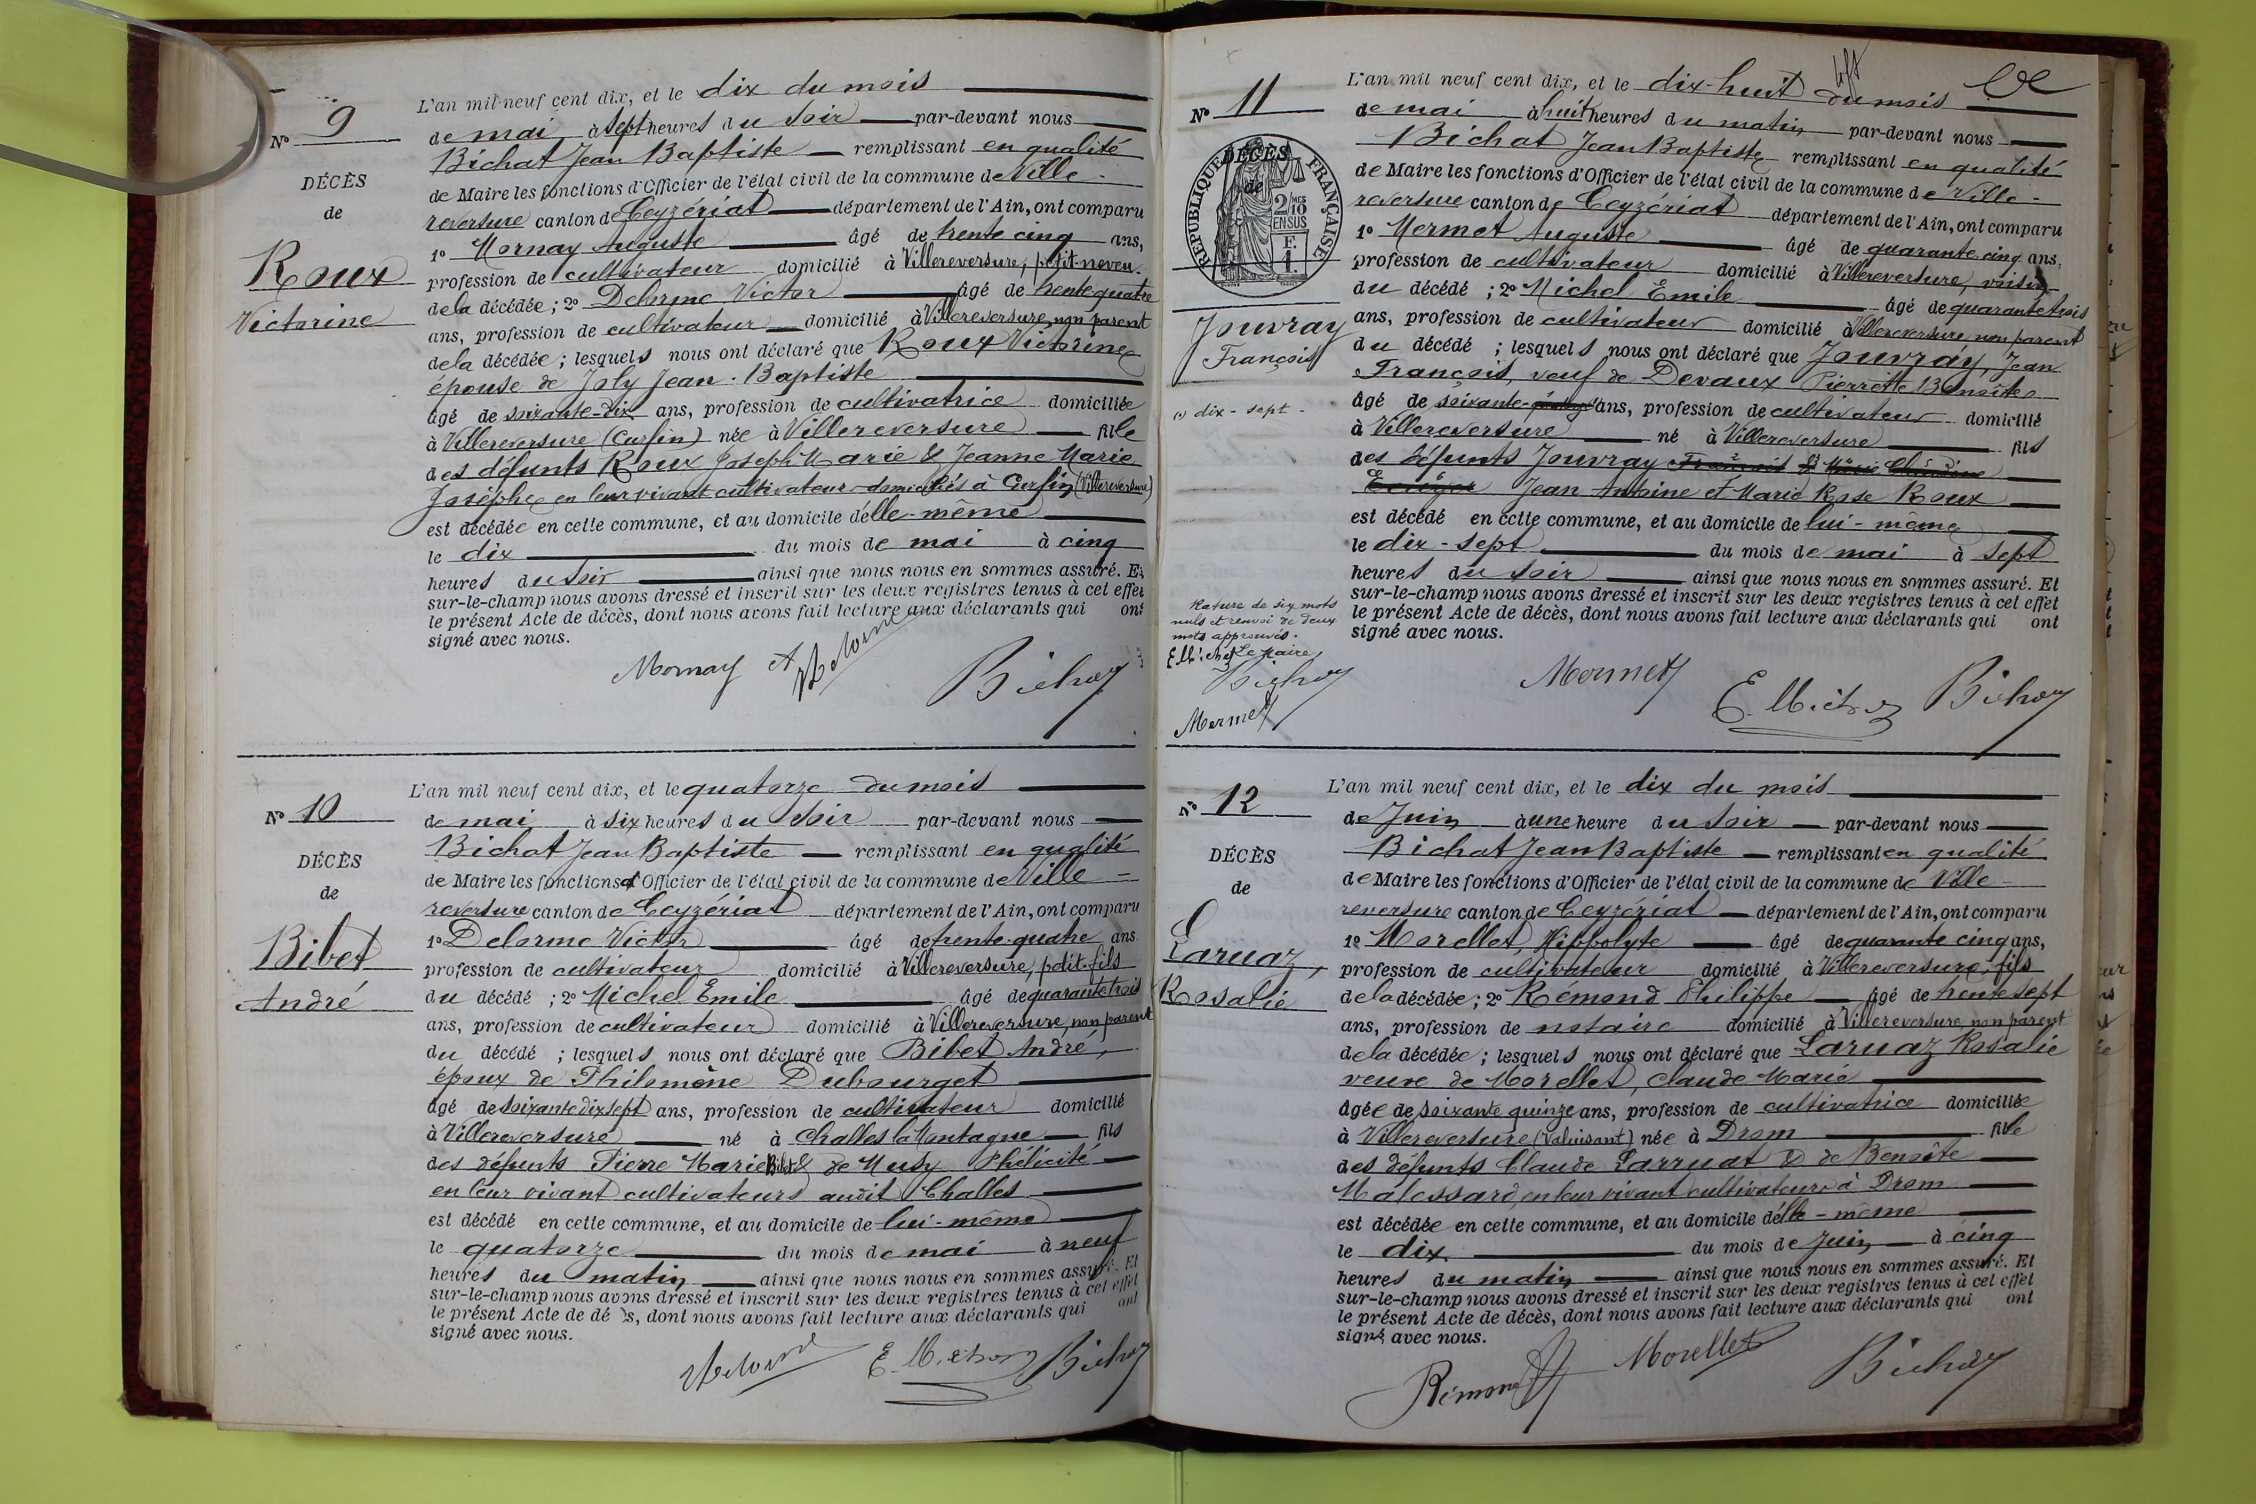 N° 9
DÉCÈS
de
Roux
Victorine
L'an mil neuf cent dix, et le dix du mois
de mai à sept heures du soir par-devant nous
Bichat Jean Baptiste remplissant en qualité
de Maire les fonctions d'Officier de l'état civil de la commune de Ville-
reversure canton de Ceyzériat département de l'Ain, ont comparu
1° Mornay Auguste âgé de trente cinq ans,
profession de cultivateur domicilié à Villereversure, petit-neveu
de la décédée ; 2° Delorme Victor âgé de trente quatre
ans, profession de cultivateur domicilié à Villereversure non parent
de la décédée ; lesquels nous ont déclaré que Roux Victorine
épouse de Joly Jean-Baptiste
âgé de soixante-dix ans, profession de cultivatrice domiciliée
à Villereversure (Cuvfin) née à Villereversure fille
des défunts Roux Joseph Marie & Jeanne Marie
Josèphe en leur vivant cultivateurs domiciliés à (Villereversure)
est décédée en cette commune, et au domicile d'elle-même
le dix du mois de mai à cinq
heures du soir ainsi que nous nous en sommes assuré. Et
sur-le-champ nous avons dressé et inscrit sur les deux registres tenus à cet effet
le présent Acte de décès, dont nous avons fait lecture aux déclarants qui ont
signé avec nous.
Mornay A Delorme Bichat
N° 10
DÉCÈS
de
Bibet
André
L'an mil neuf cent dix, et le quatorze du mois
de mai à six heures du soir par-devant nous
Bichat Jean Baptiste remplissant en qualité
de Maire les fonctions d'Officier de l'état civil de la commune de Ville-
reversure canton de Ceyzériat département de l'Ain, ont comparu
1° Delorme Victor âgé de trente-quatre ans
profession de cultivateur domicilié à Villereversure, petit-fils
du décédé ; 2° Michel Emile âgé de quarante trois
ans, profession de cultivateur domicilié à Villereversure, non parent
du décédé ; lesquels nous ont déclaré que Bibet André,
époux de Philomène Dubourget
âgé de soixante dix sept ans, profession de cultivateur domicilié
à Villereversure né à Challes la Montagne fils
des défunts Pierre Marie Bibet & de Musy Phélicité
en leur vivant cultivateurs audit Challes
est décédé en cette commune, et au domicile de lui-même
le quatorze du mois de mai à neuf
heures du matin ainsi que nous nous en sommes assuré. Et
sur-le-champ nous avons dressé et inscrit sur les deux registres tenus à cet effet
le présent Acte de décès, dont nous avons fait lecture aux déclarants qui ont
signé avec nous.
Delorme E. Michel Bichat
N° 11
RÉPUBLIQUE FRANÇAISE
2/10 MES
EN SUS
F. 1.
DÉCÈS
de
Jouvray
François
(1) dix-sept
Rature de six mots
nuls et renvoi de deux
mots approuvés.
E. Michel Le Maire
Bichat
Mermet
L'an mil neuf cent dix, et le dix-huit du mois
de mai à huit heures du matin par-devant nous
Bichat Jean Baptiste remplissant en qualité
de Maire les fonctions d'Officier de l'état civil de la commune de Ville-
reversure canton de Ceyzériat département de l'Ain, ont comparu
1° Mermet Auguste âgé de quarante cinq ans,
profession de cultivateur domicilié à Villereversure, voisin
du décédé ; 2° Michel Emile âgé de quarante trois
ans, profession de cultivateur domicilié à Villereversure, non parent
du décédé ; lesquels nous ont déclaré que Jouvray, Jean
François, veuf de Devaux Pierrette Benoîte
âgé de soixante- ans, profession de cultivateur domicilié
à Villereversure né à Villereversure fils
des défunts Jouvray François & Marie Claudine
Jean Antoine et Marie Rose Roux
est décédé en cette commune, et au domicile de lui-même
le dix-sept du mois de mai à sept
heures du soir ainsi que nous nous en sommes assuré. Et
sur-le-champ nous avons dressé et inscrit sur les deux registres tenus à cet effet
le présent Acte de décès, dont nous avons fait lecture aux déclarants qui ont
signé avec nous.
Mermet E. Michel Bichat
N° 12
DÉCÈS
de
Laruaz,
Rosalie
L'an mil neuf cent dix, et le dix du mois
de Juin à une heure du soir par-devant nous
Bichat Jean Baptiste remplissant en qualité
de Maire les fonctions d'Officier de l'état civil de la commune de Ville-
reversure canton de Ceyzériat département de l'Ain, ont comparu
1° Morellet, Hippolyte âgé de quarante cinq ans,
profession de cultivateur domicilié à Villereversure, fils
de la décédée ; 2° Rémond Philippe âgé de trente sept
ans, profession de notaire domicilié à Villereversure non parent
de la décédée ; lesquels nous ont déclaré que Laruaz Rosalie
veuve de Morellet, Claude Marie
âgée de soixante quinze ans, profession de cultivatrice domiciliée
à Villereversure (Valuisant) née à Drom fille
des défunts Claude Larruat & de Benoîte
Malessard, en leur vivant cultivateurs à Drom
est décédée en cette commune, et au domicile d'elle-même
le dix du mois de Juin à cinq
heures du matin ainsi que nous nous en sommes assuré. Et
sur-le-champ nous avons dressé et inscrit sur les deux registres tenus à cet effet
le présent Acte de décès, dont nous avons fait lecture aux déclarants qui ont
signé avec nous.
Rémond Morellet Bichat